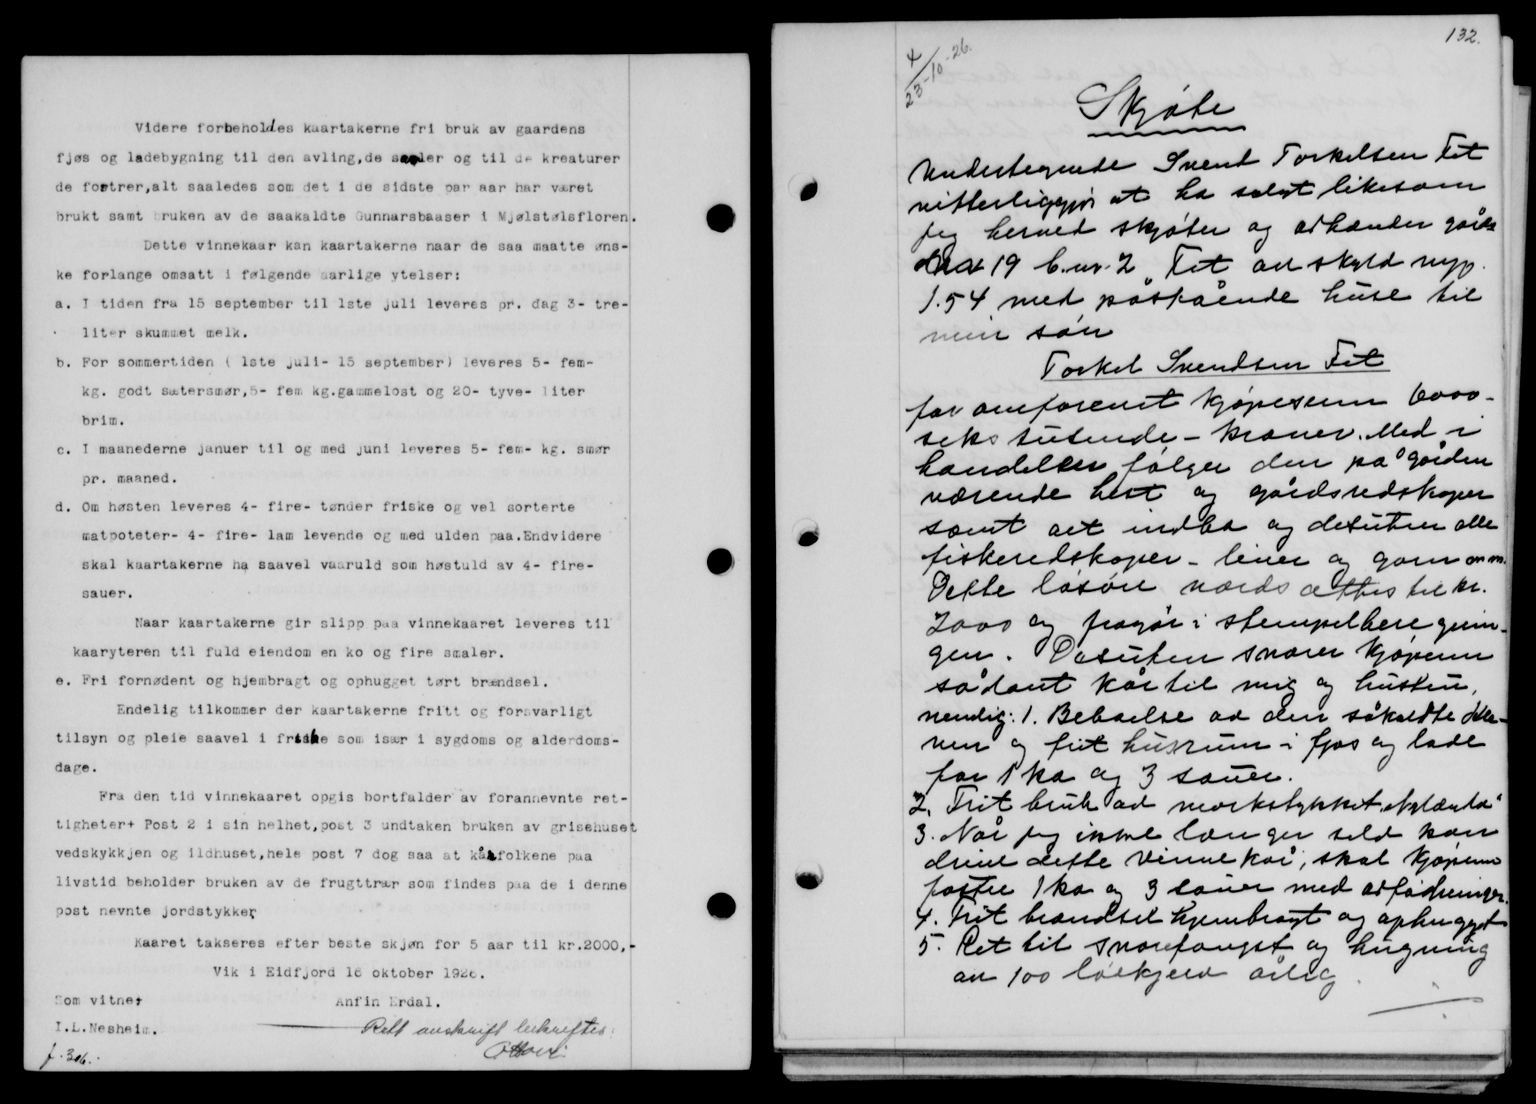 Videre forbeholdes kaartakerne fri bruk av gaardens
fjøs og ladebygning til den avling, de samler og til de kreaturer
de fostrer, alt saaledes som det i de sidste par aar har været
brukt samt bruken av de saakaldte Gunnarsbaaser i Mjølstølsfloren.
Dette vinnekaar kan kaartakerne naar de saa maatte øns-
ke forlange omsatt i følgende aarlige ytelser:
a. I tiden fra 15 september til 1ste juli leveres pr. dag 3- tre-
liter skummet melk.
b. For sommertiden ( 1ste juli- 15 september) leveres 5- fem-
kg. godt sætersmør, 5- fem kg.gammelost og 20- tyve- liter
brim.
c. I maanederne januer til og med juni leveres 5- fem- kg. smør
pr. maaned.
d. Om høsten leveres 4- fire- tønder friske og vel sorterte
matpoteter- 4- fire- lam levende og med ulden paa. Endvidere
skal kaartakerne ha saavel vaaruld som høstuld av 4- fire-
sauer.
Naar kaartakerne gir slipp paa vinnekaaret leveres til
kaaryteren til fuld eiendom en ko og fire smaler.
e. Fri fornødent og hjembragt og ophugget tørt brændsel.
Endelig tilkommer der kaartakerne fritt og forsvarligt
tilsyn og pleie saavel i friske som især i sygdoms og alderdoms-
dage.
Fra den tid vinnekaaret opgis bortfalder av forannevnte ret-
tigheter+ Post 2 i sin helhet, post 3 undtaken bruken av grisehuset
vedskykkjen og ildhuset, hele post 7 dog saa at kårfolkene paa
livstid beholder bruken av de frugttrær som findes paa de i denne
post nevnte jordstykker
Kaaret takseres efter beste skjøn for 5 aar til kr.2000,-
Vik i Eidfjord 16 oktober 1926.
Som vitne+
Anfin Erdal.
I.L.Nesheim.
Rett avskrift bekreftes:
f. 306.
132.
4/23-10-26.
Skjøte
Undertegnede Svend Torkelsen Fet
vitterliggjør at ha solgt likesom
jeg herved skjøter og avhænder gårds
19 b.nr. 2 Fet av skyld myr.
1.54 med påstående huse til
min søn
Torkel Svendsen Fet
for omforenet kjøpesum 6000 -
seks tusende - kroner. Med i
handelen følger den på gården
værende hest og gårdsredskaper
samt alt indbo og desuten alle
fiskeredskaper - liner og garn m.m.
Dette løsøre værdsættes til kr.
2000 og fragår i stempelberegnin-
gen. Desuten svarer kjøperen
sådant kår til mig og hustru,
nemlig: 1. Beboelse av den såkaldte
og frit husrum i fjøs og lade
for 1 ko og 3 sauer.
2. Frit bruk av
3. Når jeg ikke længer selv kan
drive dette vinnekår, skal kjøperen
fostre 1 ko og 3 sauer med avfødninger.
4. Frit brændsel hjembragt og ophugget
5. Ret til snarefangst og hugning
av 100 lauvkjerv årlig.